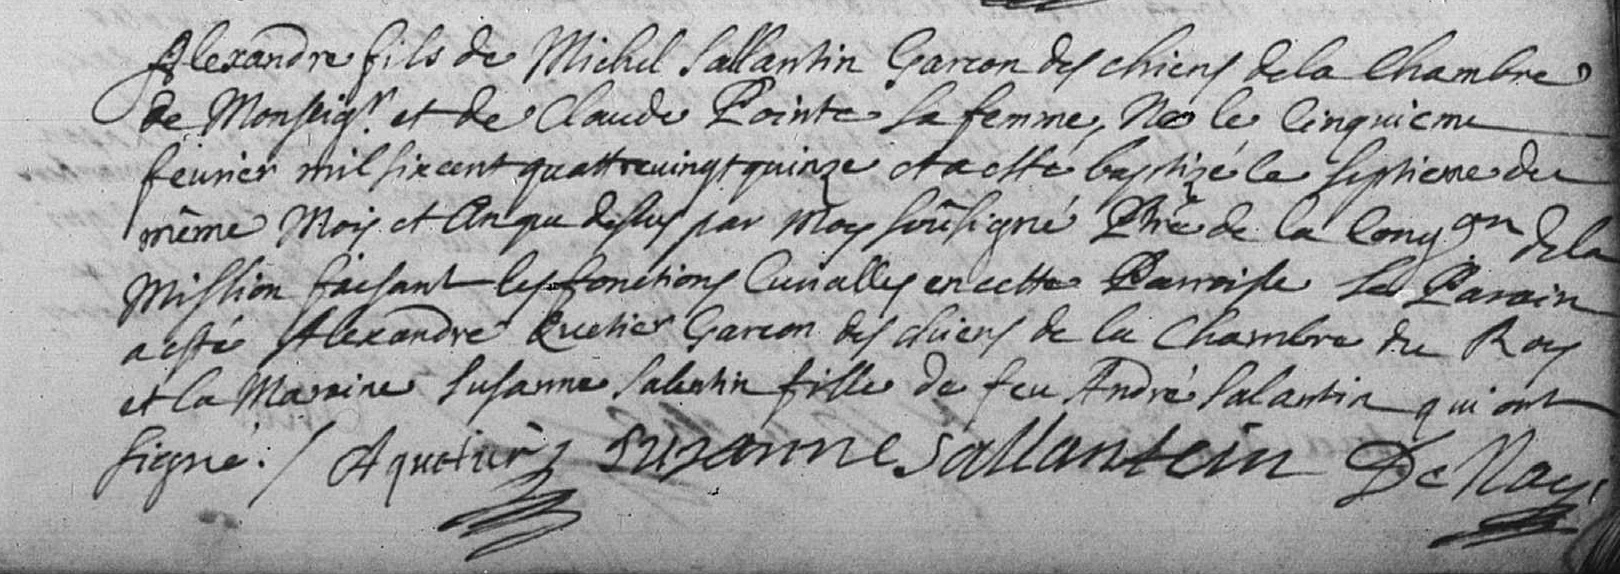 Alexandre fils de Michel Sallantin Garcon des chiens de la Chambre
de Monseigr. et de Claude Pointe sa femme, Né le Cinquieme
feurier mil six cent quattreuingt quinze et a esté baptizé le septieme du
même Mois et An que dessus par moy soûsigné Ptrē de la Congon de la
Mission faisant les fonctions Curialles en cette Parroisse Le Parain
a esté Alexandre Quetier Garcon des chiens de la Chambre du Roy
et la Maraine Susanne Salentin fille de feu André Salantin qui ont
signé ./ Aquetier suzanne sallantein De Nay